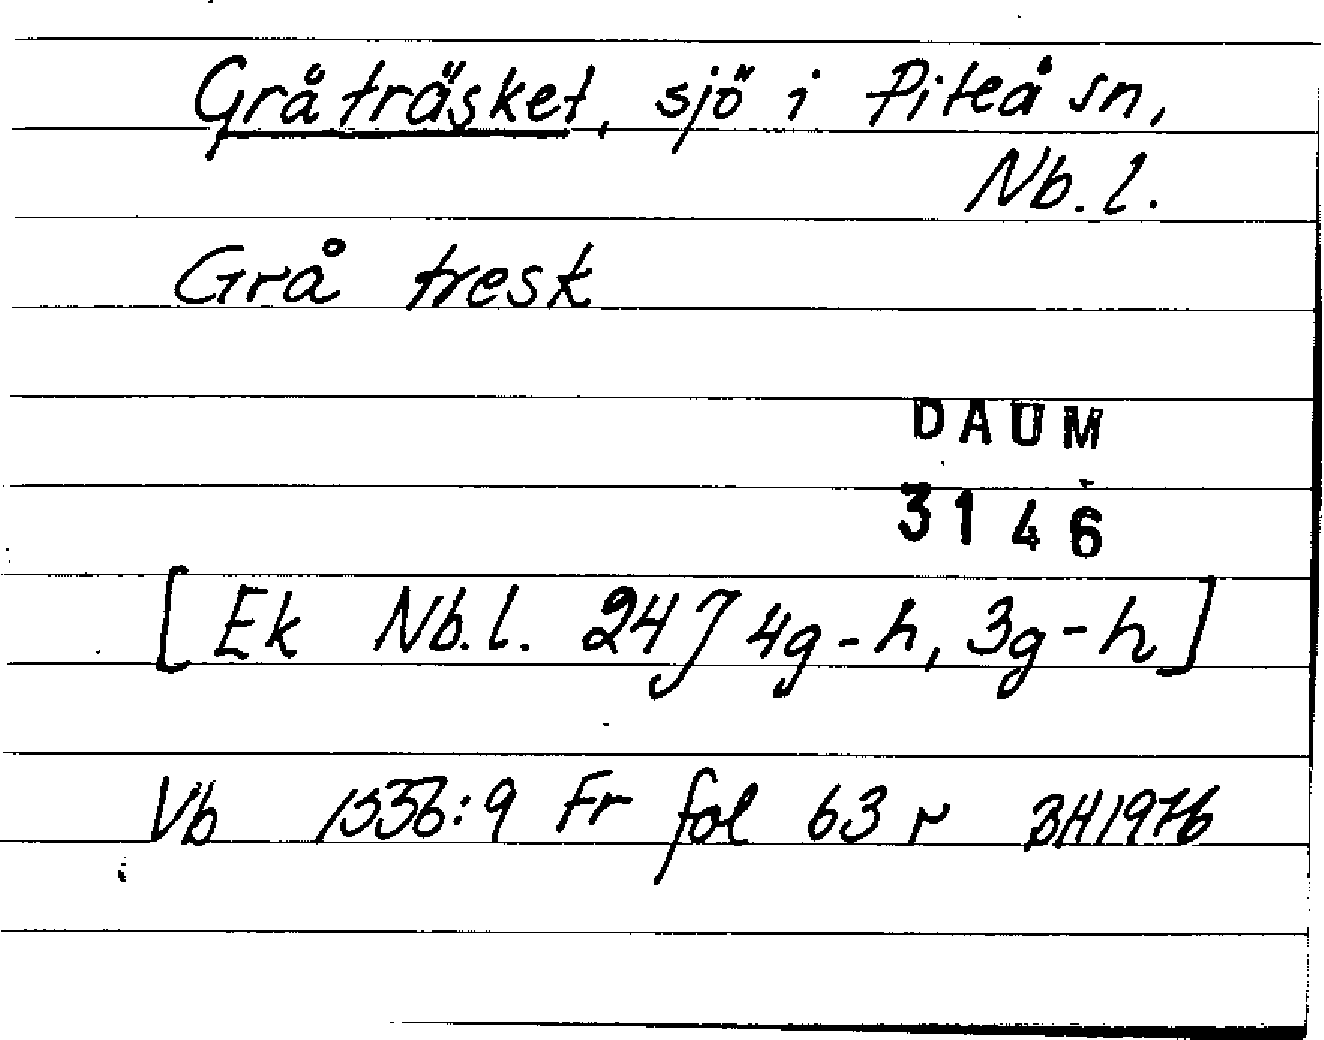 Gråträsket, sjö i Piteå sn,
Nb. l.
Grå tresk
DAUM
3146
[Ek Nb. l. 24J 4g-h, 3g-h]
Vb 1556:9 Fr fol 63 r BH1976